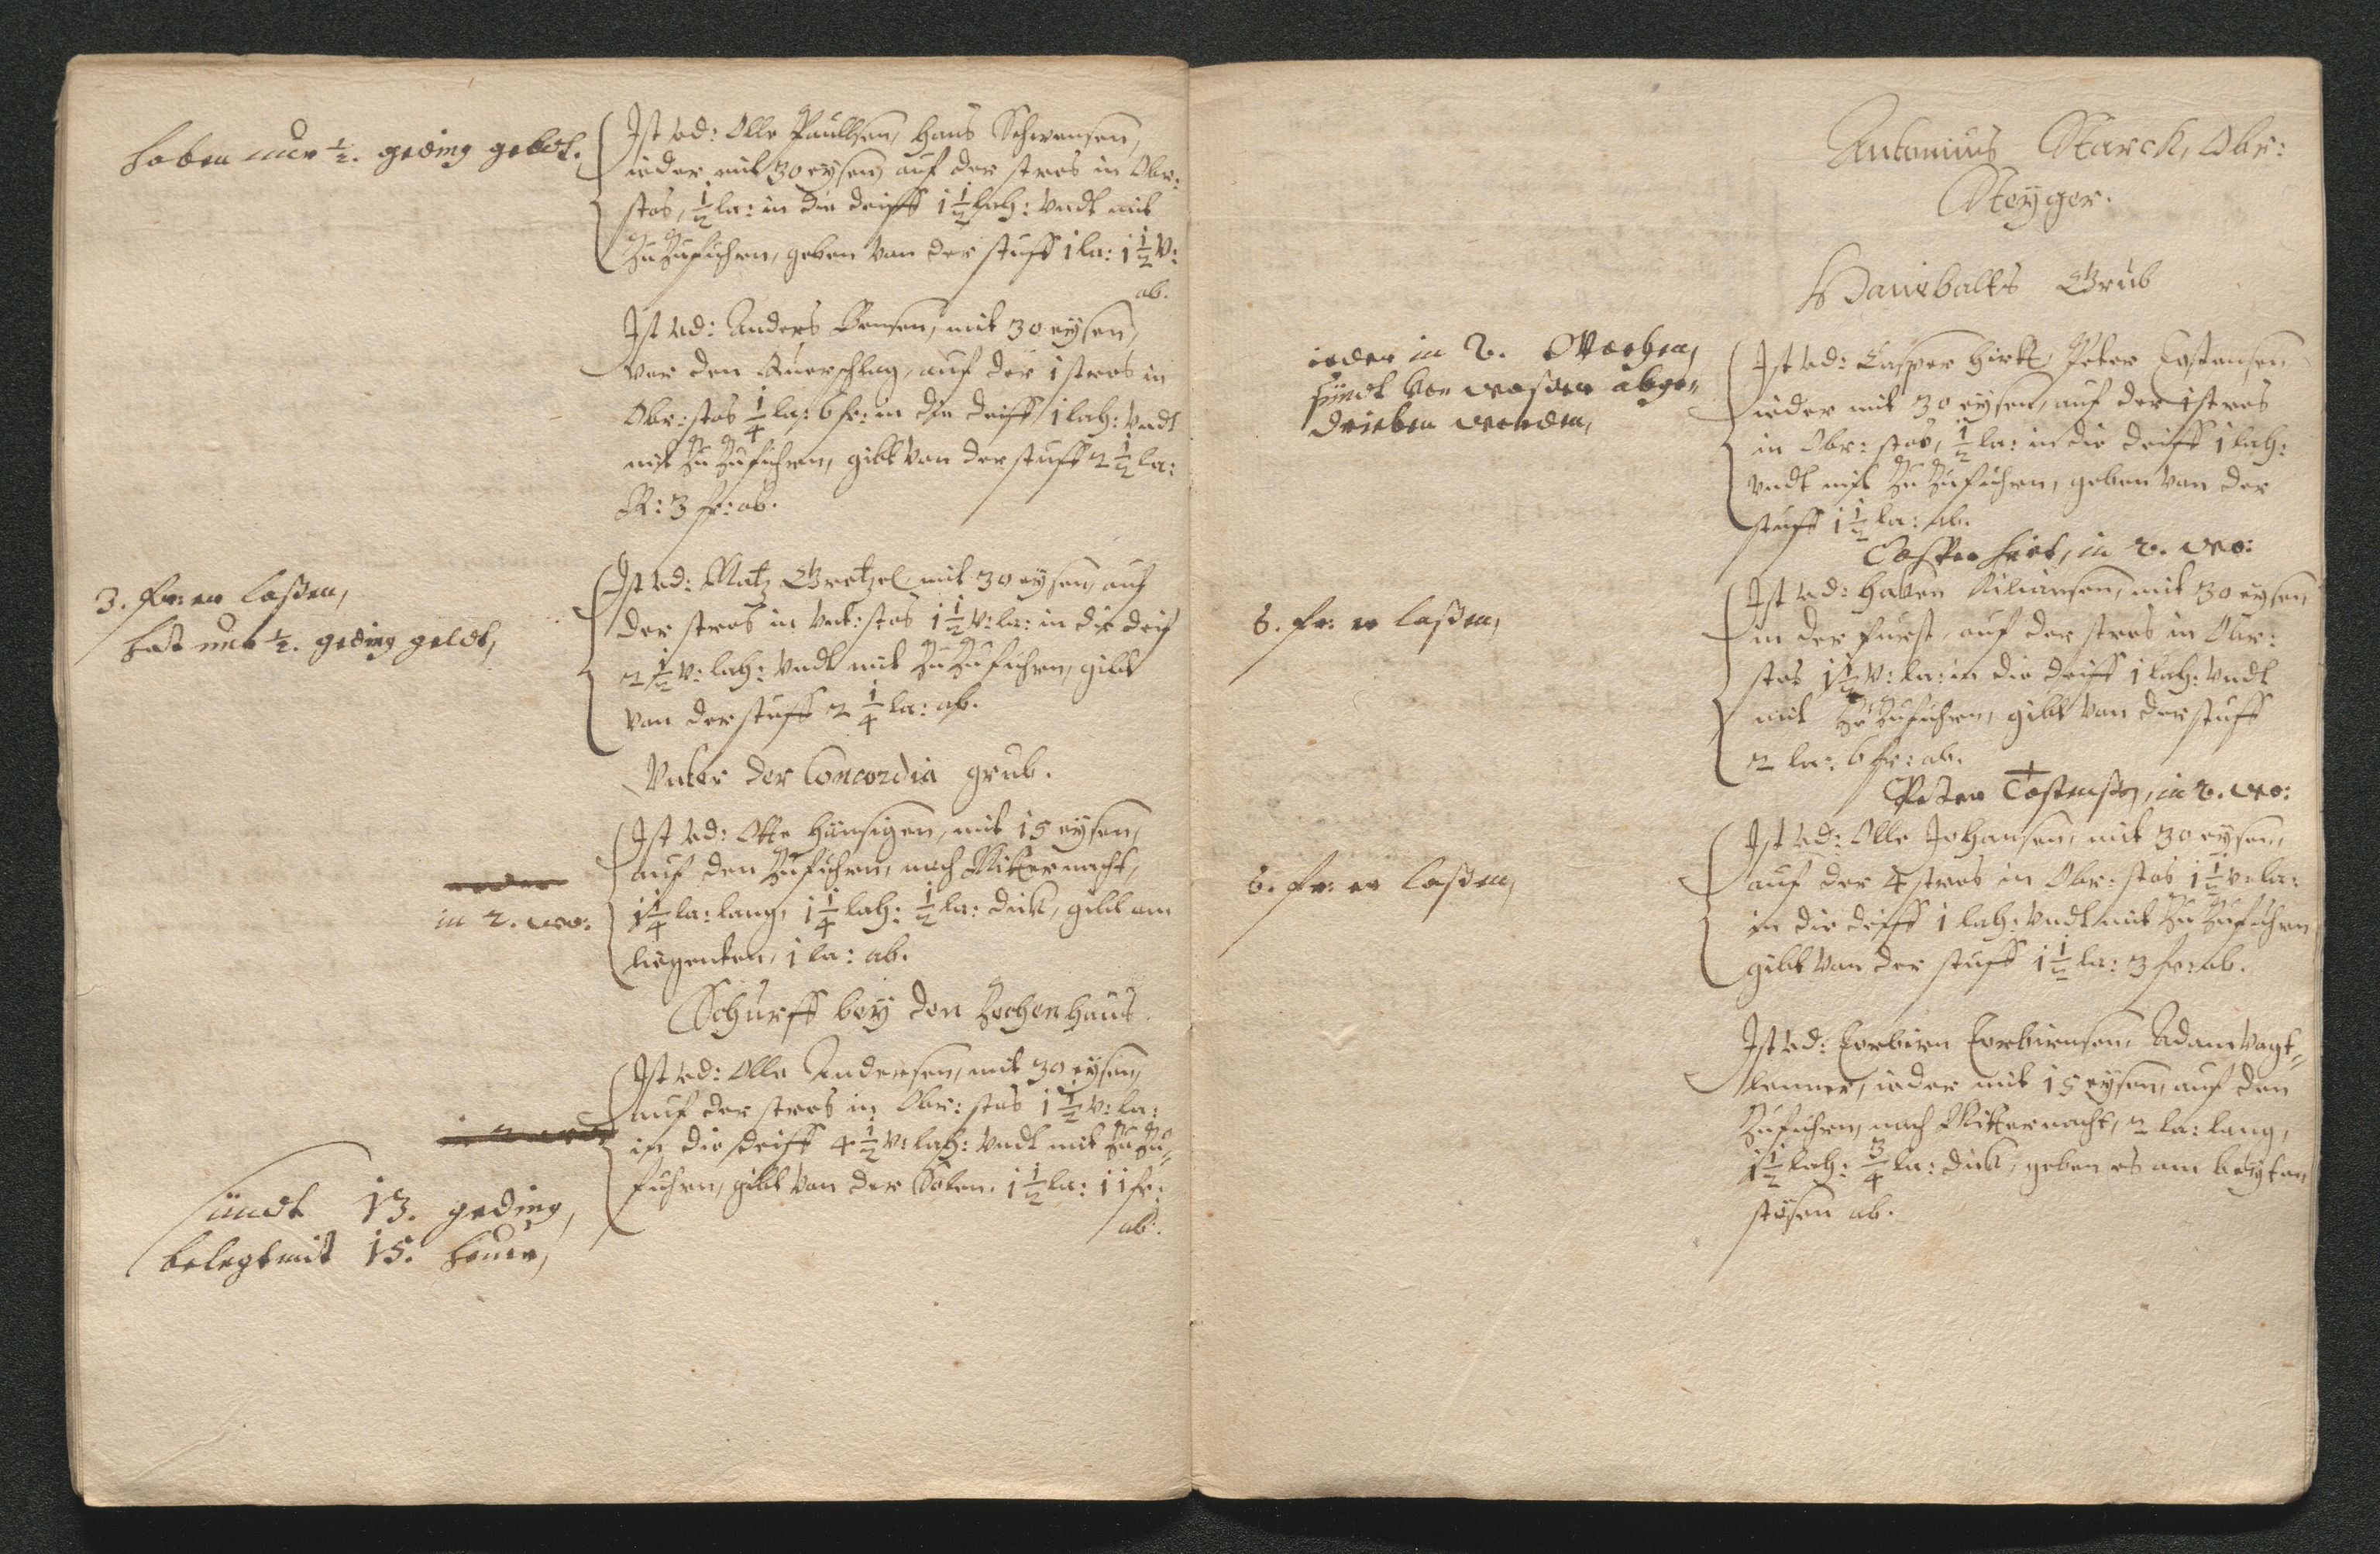 haben nur ½. geding geldt.
Ist vd: Olle Paulsen, Hans Schwensen,
ieder mit 30 eysen, auf der stros in Obr:
stos, ½ la: in die deiff 1 ½ lah: vndt mit
Zu Zufuhren, geben von der stuff 1 la: 1 ½ v:
ab.
Ist vd: Anders Bensen, mit 30 eysen,
vor den Querschlag, auf der 1 stros in
Obr: stos ¼ la: 6 fr: in die deiff 1 lah: vndt
mit Zu Zufuhren, gibt von der stuff 2 ½ la:
R: 3 fr: ab.
3. fr: er laßen,
hat nur ½. geding geldt,
Ist vd: Matz Gretzel mit 30 eysen, auf
der stros in Unt: stos 1 ½ v: la: in die deif
2 ½ v: lah: vndt mit Zu Zufuhren, gibt
von der stuff 2 ¼ la: ab.
Unter der Concordia grub.
in 2. wo:
Ist vd: Otte Hünsigen, mit 15 eysen,
auf den Zufuhren, nach Mitternacht,
1 ¼ la: lang, 1 ¼ lah: ½ la: dick, gibt am
liegenten, 1 la: ab.
Schurff bey den Zechenhaus.
Ist vd: Olle Andersen, mit 30 eysen,
auf der stros in Obr: stos 1 ½ v: la:
in die deiff 4 ½ v: lah: vndt mit Zu Zu-
fuhren, gibt von der Solen. 1 ½ la: 11 fr:
ab.
sündt 13. geding,
belegt mit 15. heuer,
Antonius Starck, Obr:
Steyger.
Hanibalts Grub
ieder in 2. Wochen,
sündt von waßer abge-
drieben worden,
Ist vd: Casper Hirtt, Peter Tostensen
ieder mit 30 eysen, auf der 1 stros
in Obr: stos, ½ la: in die deiff 1 lah:
vndt mit Zu Zufuhren, geben von der
stuff 1 ½ la: ab.
Casper Hirt, in 2. wo:
6. fr: er laßen,
Ist vd: Haven Kiliansen, mit 30 eysen,
in der furst, auf der stros in Obr:
stos 1 ½ v: la: in die deiff 1 lah: vndt
mit Zu Zufuhren, gibt von der stuff
2 la: 6 fr: ab.
Peter Tostensen, in 2. wo:
6. fr: er laßen,
Ist vd: Olle Johansen, mit 30 eysen,
auf der 4 stros in Obr: stos 1 ½ v: la:
in die deiff 1 lah: vndt mit Zu Zufuhren
gibt von der stuff 1 ½ la: 3 fr: ab.
Ist vd: Torbiren Torbirensen, Adam Vagt-
lenner, ieder mit 15 eysen, auf den
Zufuhren, nach Mitternacht, 2 la: lang,
1 ½ lah: ¾ la: dick, geben es am beyten
stösen ab.